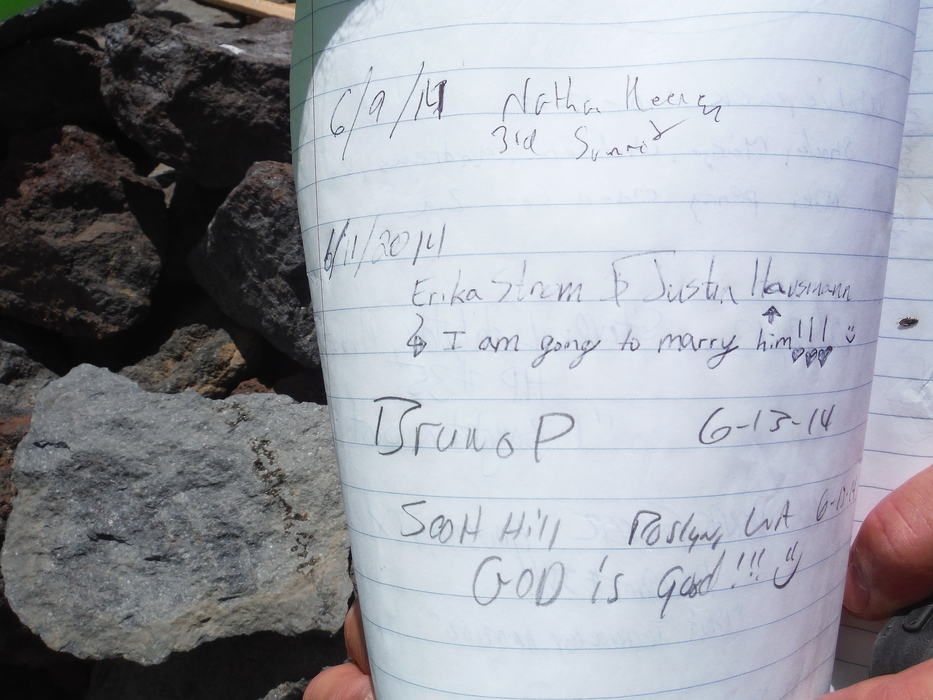 6/9/14 Nathan
3rd Summit
6/11/2014
Erika Strom & Justin Hausmann
I am going to marry him!!!
Bruno P 6-13-14
Scott Hill Roslyn, WA
GOD is good!!!